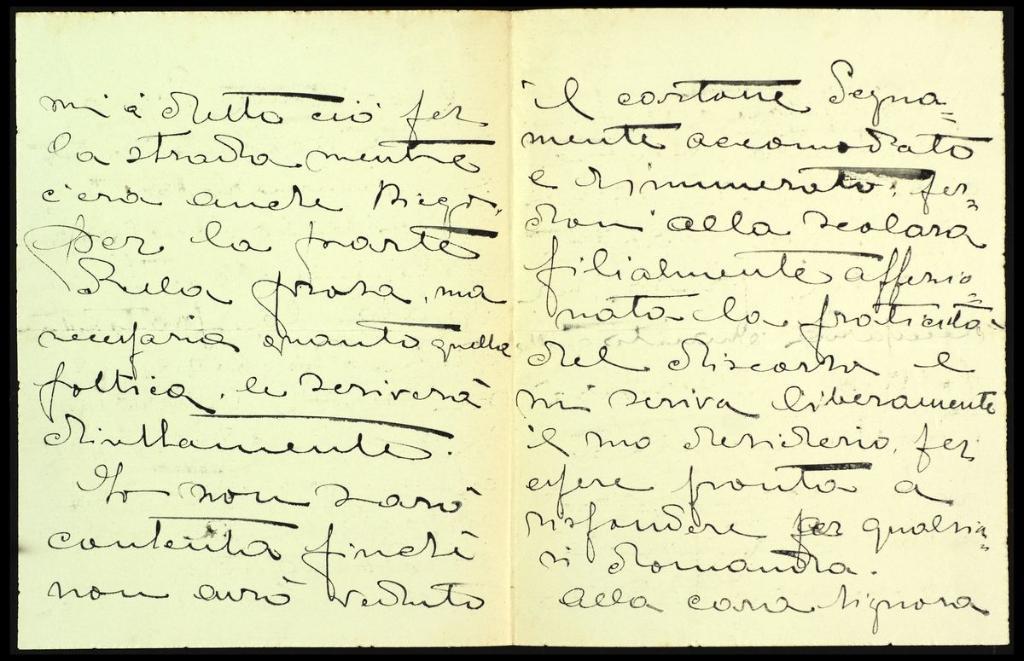 mi à detto ciò per
la strada mentre
c'era anche
Per la parte
Bella prosa, ma
necessaria quanto quella
poltica, le scriverà
direttamente.
Io non sarò
contenta finchè
non avrò veduto
il costone degna=
mente accomodato
e rimunerato; per=
doni alla scolara
filialmente affezio=
nata la praticità
del discorso e
mi scriva liberamente
il suo desiderio, per
essere pronta a
rispondere per qualsia=
si domanda.
Alla cara Signora